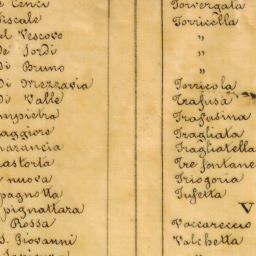 e Cenci
Fiscale
el Vescovo
De Sordi
Di Bruno
Di Mezzavia
Di Valle
ampietra
aggiore
narancia
astorta
nuova
pagnotta
pignattara
Rossa
S. Giovanni
Torvergata
Torricella
"
"
"
Torricola
Trafusa
Trafusina
Tragliata
Tragliatella
Tre fontane
Trigoria
Tufetta
V
Vaccareccio
Valchetta
"